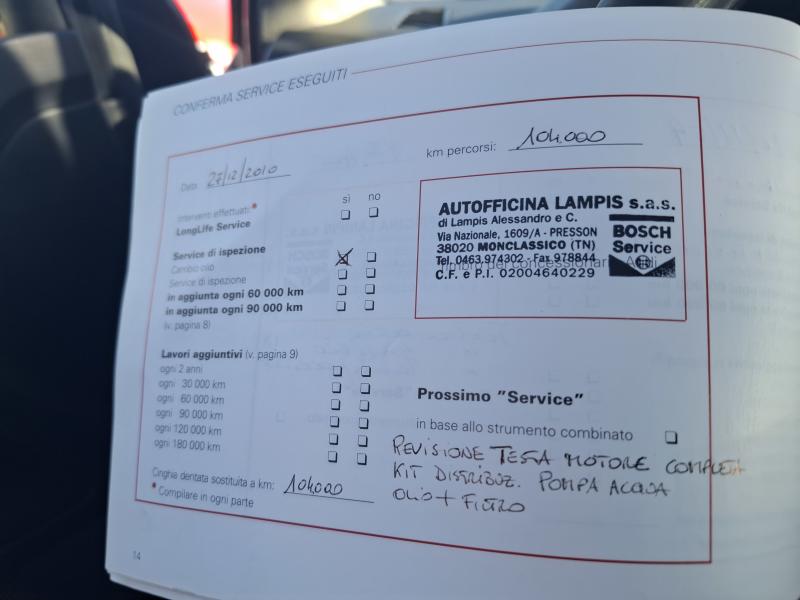 CONFERMA SERVICE ESEGUITI
Data: 27/12/2010
km percorsi: 104.000
Interventi effettuati:*
sì no
LongLife Service
Service di ispezione
Cambio olio
Service di ispezione
in aggiunta ogni 60 000 km
in aggiunta ogni 90 000 km
(v. pagina 8)
AUTOFFICINA LAMPIS s.a.s.
di Lampis Alessandro e C.
Via Nazionale, 1609/A - PRESSON
38020 MONCLASSICO (TN)
Tel. 0463.974302 - Fax 978844
C.F. e P.I. 02004640229
BOSCH
Service
Timbro del concessionario Audi
Lavori aggiuntivi (v. pagina 9)
ogni 2 anni
ogni 30 000 km
ogni 60 000 km
ogni 90 000 km
ogni 120 000 km
ogni 180 000 km
Cinghia dentata sostituita a km: 104000
* Compilare in ogni parte
Prossimo "Service"
in base allo strumento combinato
REVISIONE TESTA MOTORE COMPLETA
KIT DISTRIBUZ. POMPA ACQUA
OLIO + FILTRO
14